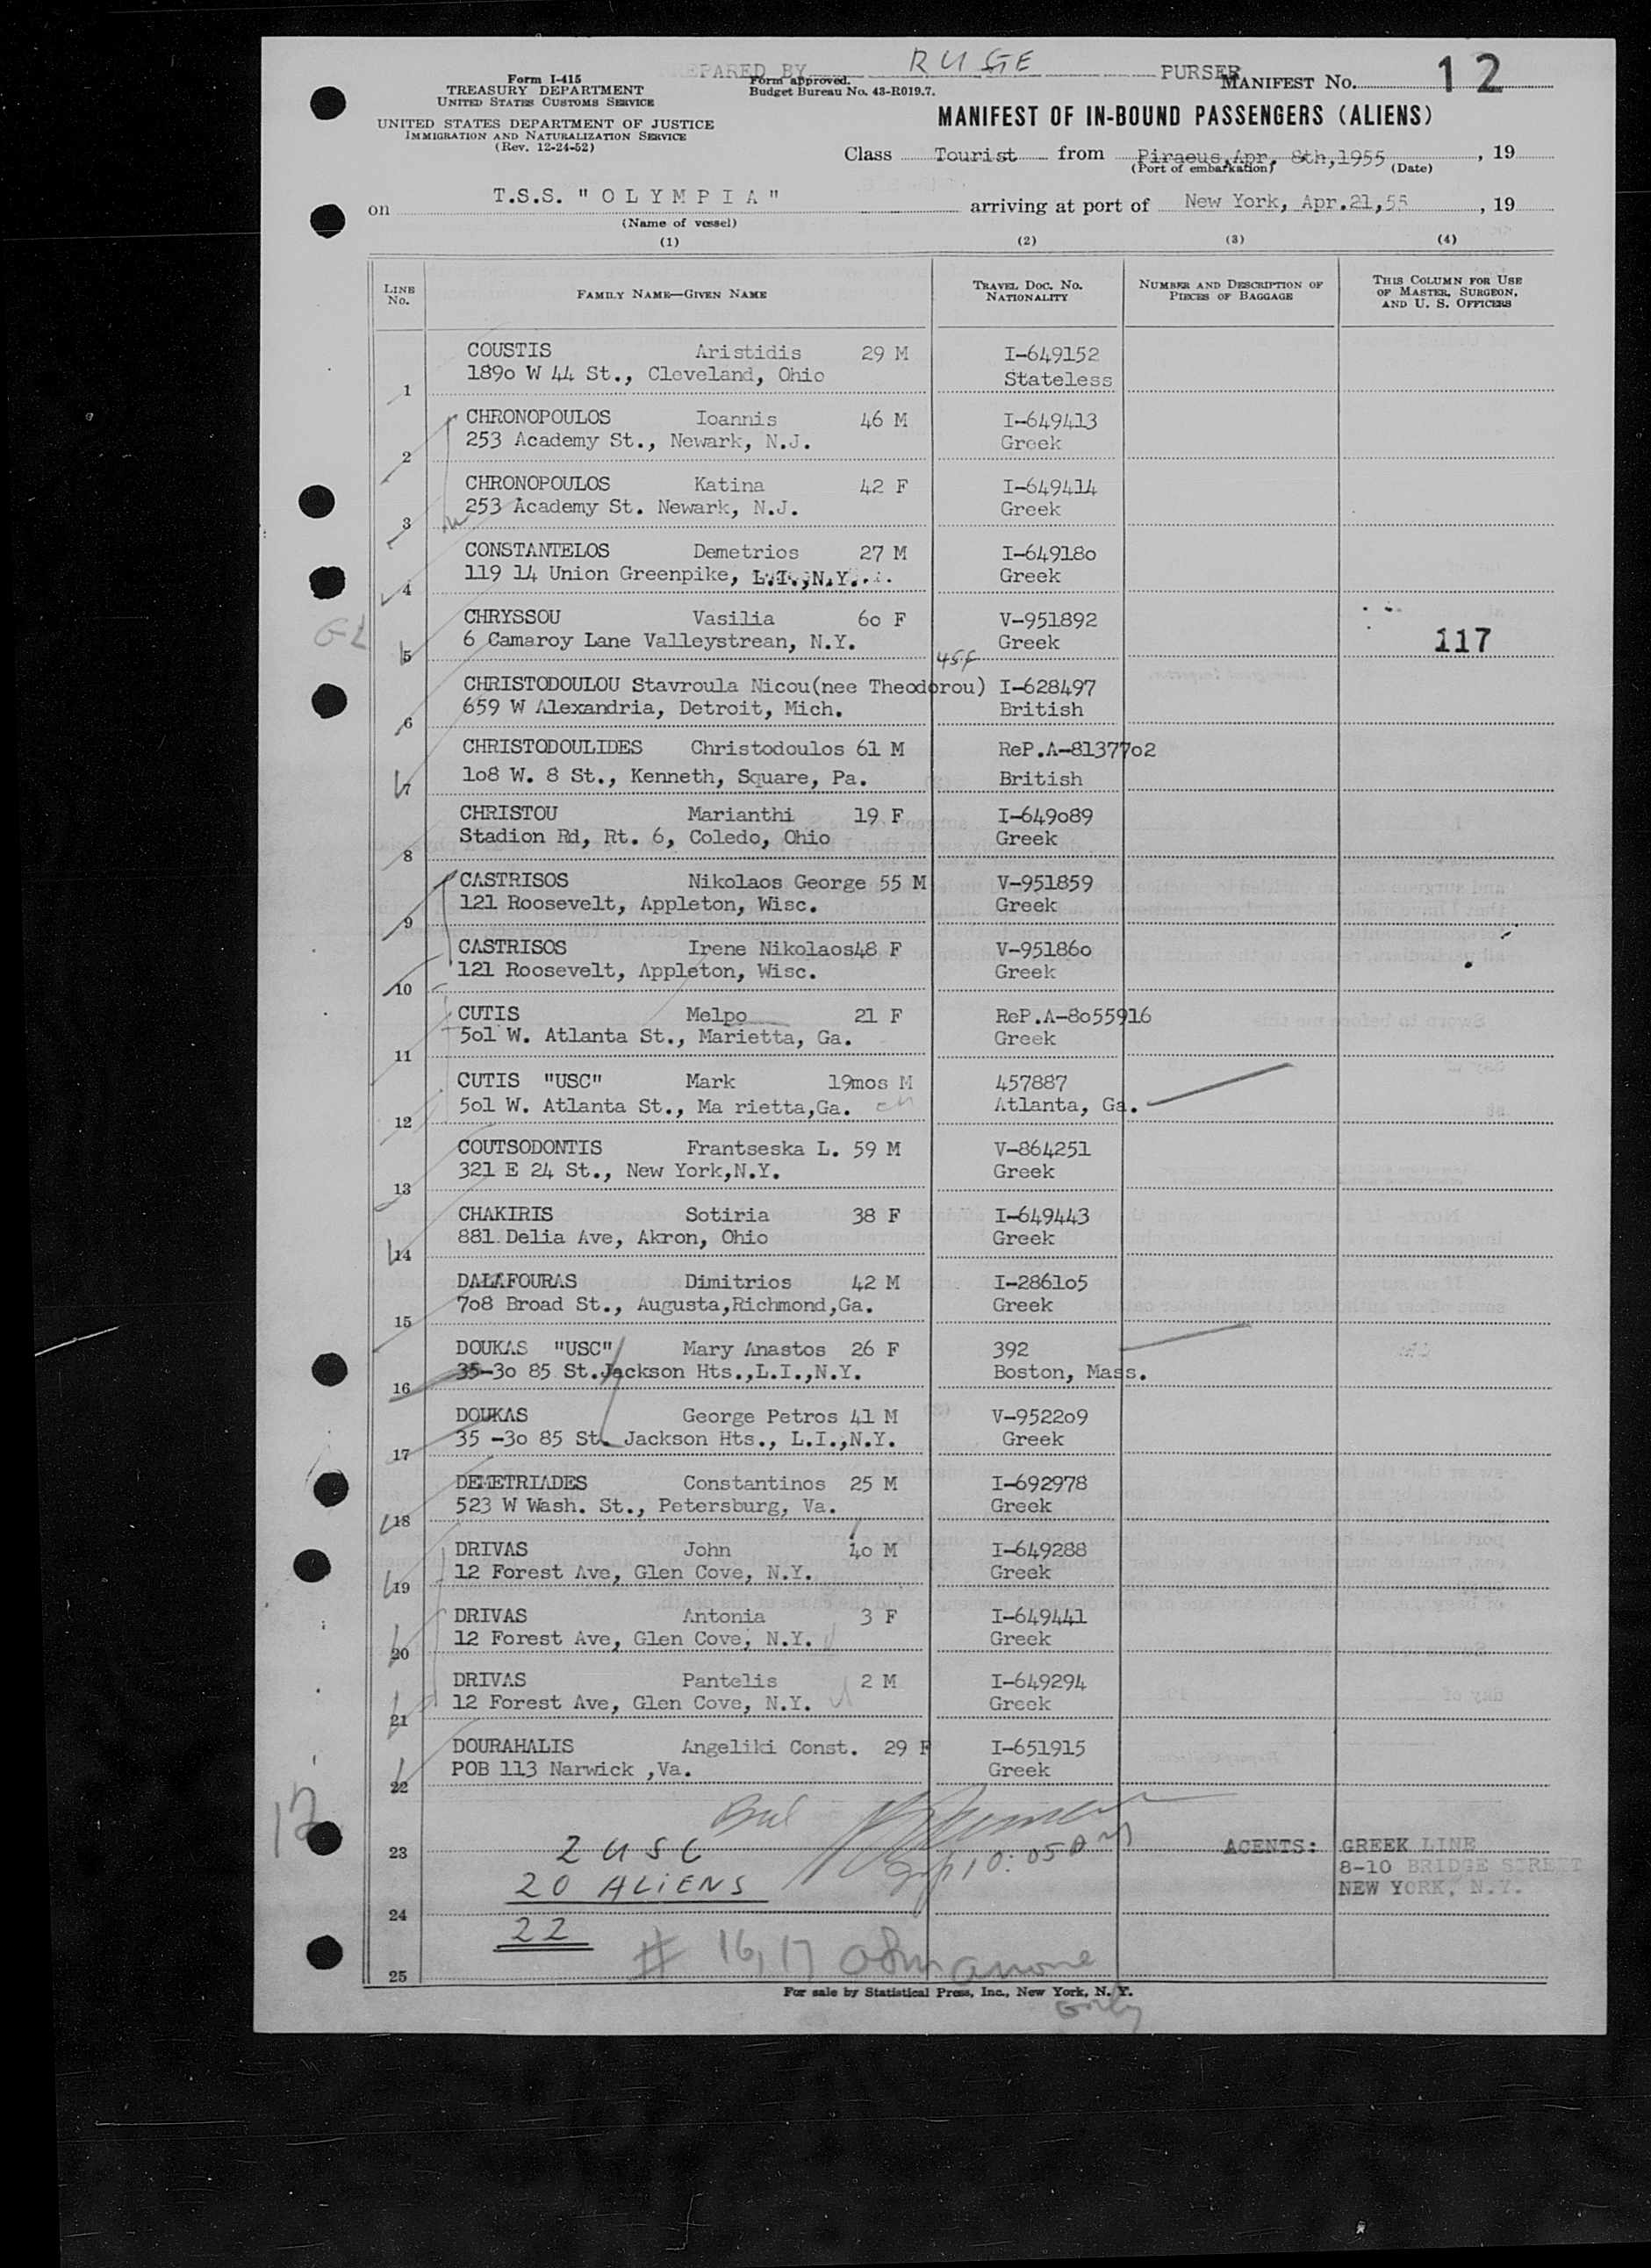 PREPARED BY RUGE PURSER
Form I-415
TREASURY DEPARTMENT
UNITED STATES CUSTOMS SERVICE
UNITED STATES DEPARTMENT OF JUSTICE
IMMIGRATION AND NATURALIZATION SERVICE
(Rev. 12-24-52)
Form approved.
Budget Bureau No. 43-R019.7.
MANIFEST NO. 12
MANIFEST OF IN-BOUND PASSENGERS (ALIENS)
Class Tourist from Piraeus,Apr. 8th,1955, 19
(Port of embarkation) (Date)
on T.S.S. "OLYMPIA" arriving at port of New York, Apr.21,55, 19
(Name of vessel)
(1) (2) (3) (4)
LINE NO. FAMILY NAME—GIVEN NAME TRAVEL DOC. NO. NATIONALITY NUMBER AND DESCRIPTION OF PIECES OF BAGGAGE THIS COLUMN FOR USE OF MASTER, SURGEON, AND U. S. OFFICERS
COUSTIS Aristidis 29 M I-649152
1 189o W 44 St., Cleveland, Ohio Stateless
CHRONOPOULOS Ioannis 46 M I-649413
2 253 Academy St., Newark, N.J. Greek
CHRONOPOULOS Katina 42 F I-649414
3 253 Academy St. Newark, N.J. Greek
CONSTANTELOS Demetrios 27 M I-64918o
4 119 14 Union Greenpike, L.I.,N.Y. Greek
CHRYSSOU Vasilia 6o F V-951892
5 6 Camaroy Lane Valleystrean, N.Y. Greek 117
GL
45f
CHRISTODOULOU Stavroula Nicou(nee Theodorou) I-628497
6 659 W Alexandria, Detroit, Mich. British
CHRISTODOULIDES Christodoulos 61 M ReP.A-81377o2
7 1o8 W. 8 St., Kenneth, Square, Pa. British
CHRISTOU Marianthi 19 F I-649o89
8 Stadion Rd, Rt. 6, Coledo, Ohio Greek
CASTRISOS Nikolaos George 55 M V-951859
9 121 Roosevelt, Appleton, Wisc. Greek
CASTRISOS Irene Nikolaos48 F V-95186o
10 121 Roosevelt, Appleton, Wisc. Greek
CUTIS Melpo 21 F ReP.A-8o55916
11 5o1 W. Atlanta St., Marietta, Ga. Greek
CUTIS "USC" Mark 19mos M 457887
12 5o1 W. Atlanta St., Ma rietta,Ga. Atlanta, Ga.
COUTSODONTIS Frantseska L. 59 M V-864251
13 321 E 24 St., New York,N.Y. Greek
CHAKIRIS Sotiria 38 F I-649443
14 881 Delia Ave, Akron, Ohio Greek
DALAFOURAS Dimitrios 42 M I-2861o5
15 7o8 Broad St., Augusta,Richmond,Ga. Greek
DOUKAS "USC" Mary Anastos 26 F 392
16 35-3o 85 St.Jackson Hts.,L.I.,N.Y. Boston, Mass.
DOUKAS George Petros 41 M V-9522o9
17 35 -3o 85 St. Jackson Hts., L.I.,N.Y. Greek
DEMETRIADES Constantinos 25 M I-692978
18 523 W Wash. St., Petersburg, Va. Greek
DRIVAS John 4o M I-649288
19 12 Forest Ave, Glen Cove, N.Y. Greek
DRIVAS Antonia 3 F I-649441
20 12 Forest Ave, Glen Cove, N.Y. Greek
DRIVAS Pantelis 2 M I-649294
21 12 Forest Ave, Glen Cove, N.Y. Greek
DOURAHALIS Angeliki Const. 29 F I-651915
22 POB 113 Narwick ,Va. Greek
12
23 2 USC 10:05 AM AGENTS: GREEK LINE
8-10 BRIDGE STREET
20 ALIENS NEW YORK, N.Y.
24
22
# 16,17
25
For sale by Statistical Press, Inc., New York, N. Y.